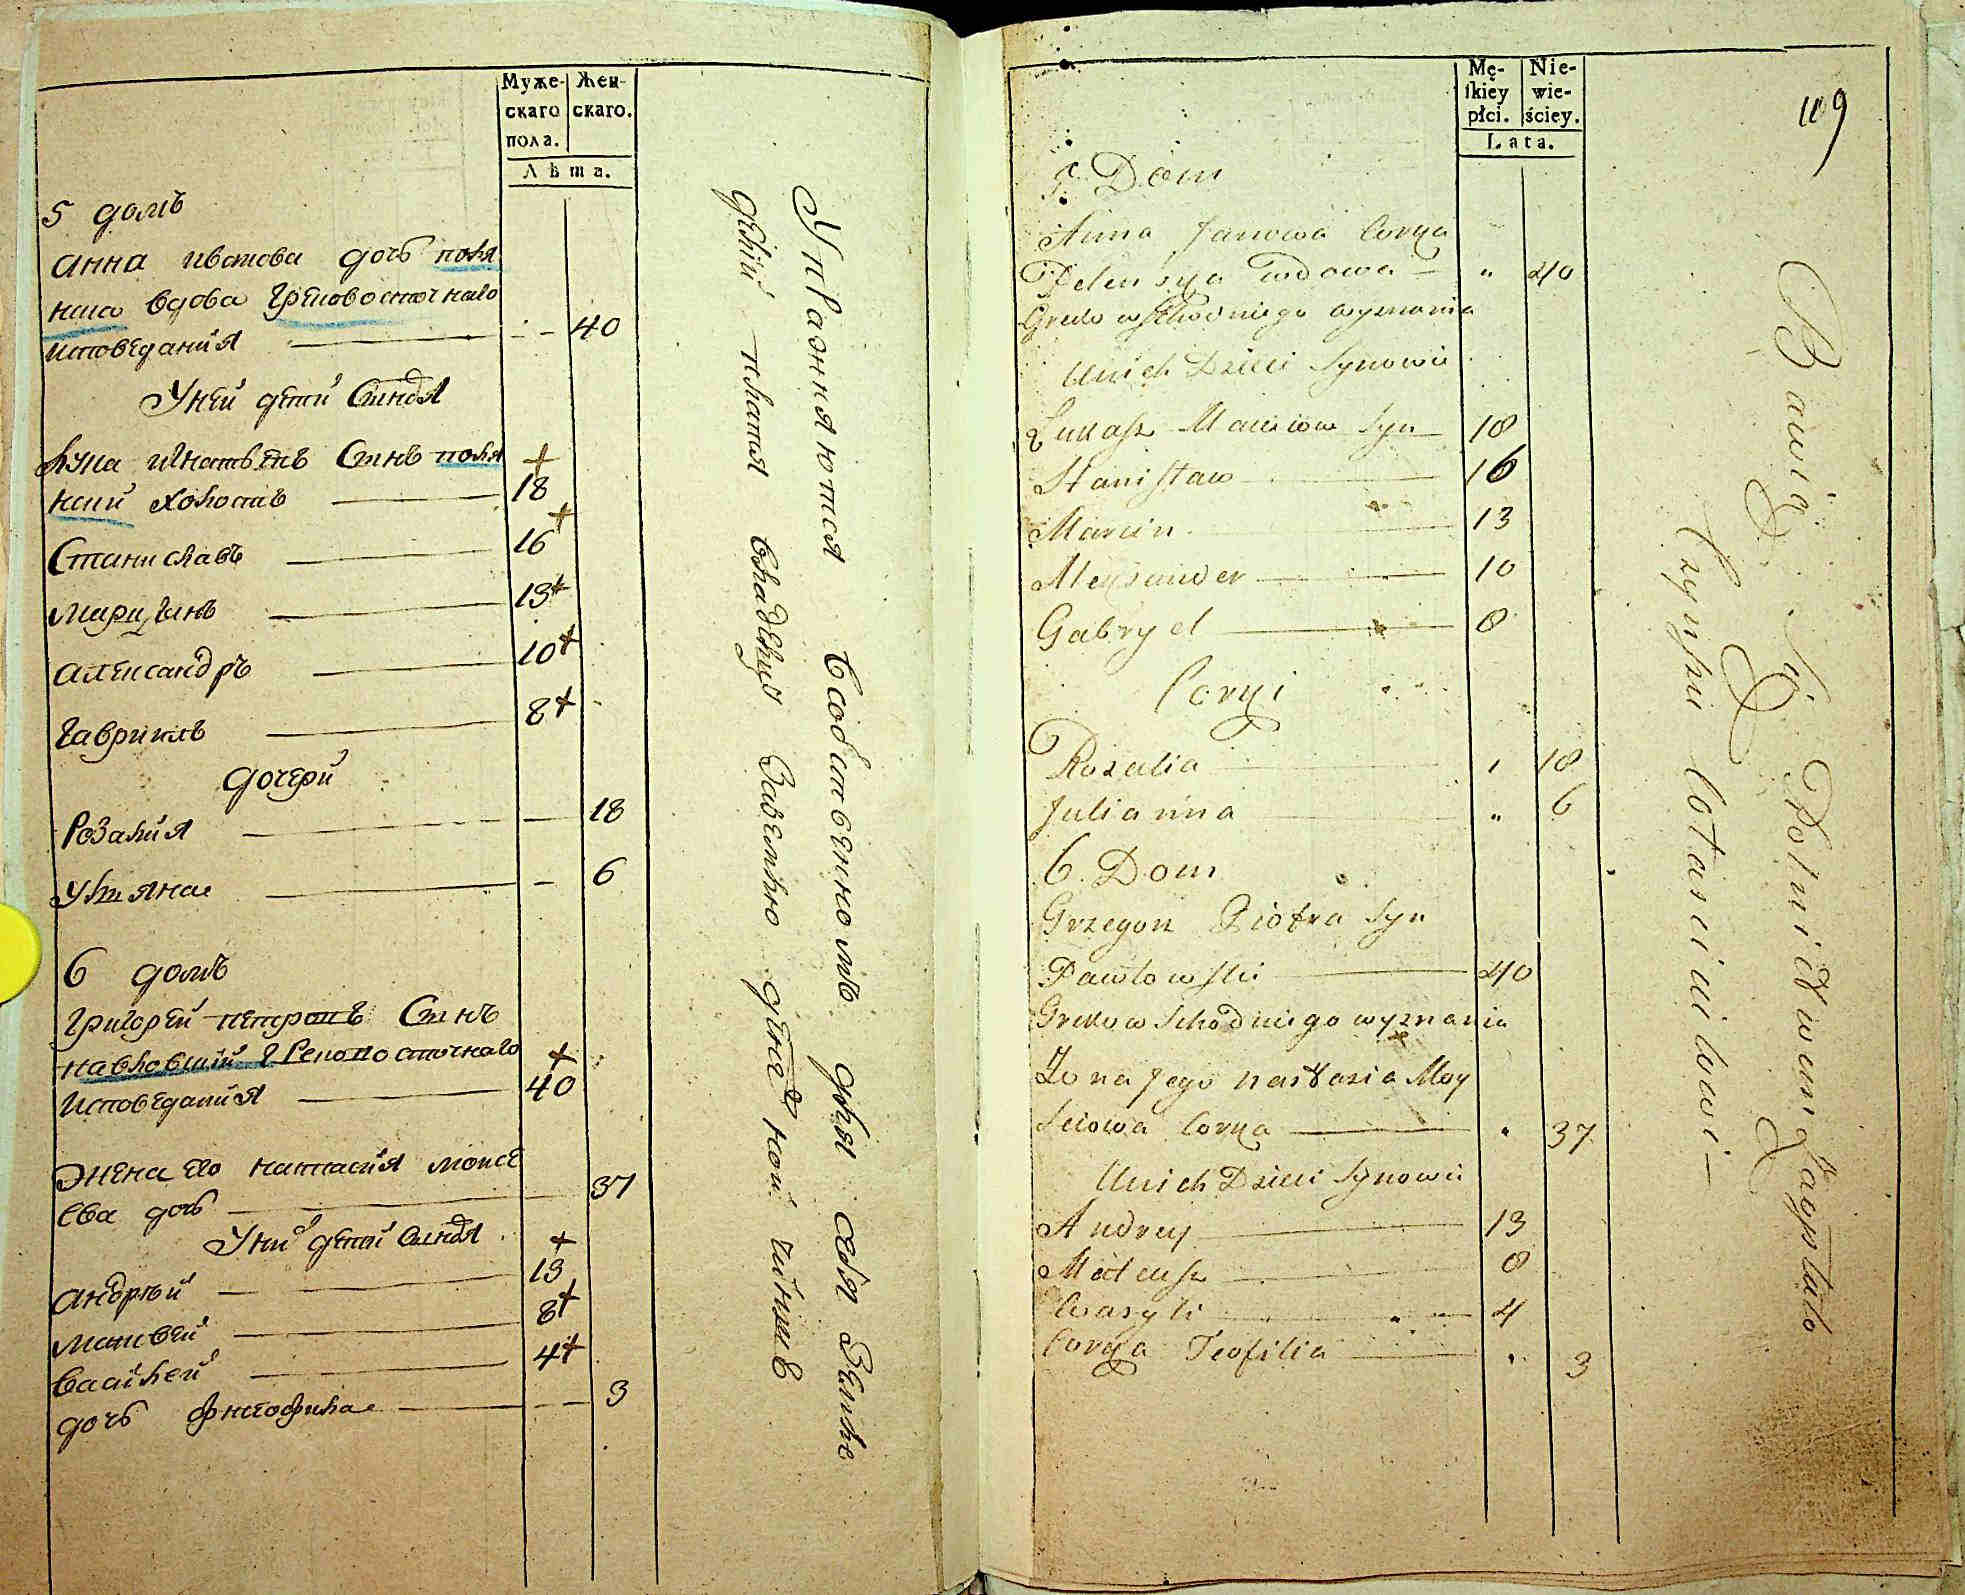 Муже-
скаго
пола.
Жен-
скаго.
Лѣта.
5 домъ
Анна Иванова дочь
вдова Грековосточнаго
исповеданія — 40
У ней детей Сынов
Лука Игнатьевъ Сынъ
холостъ — 18 +
Станиславъ — 16 +
Марцинъ — 13 +
Александръ — 10 +
Гавриилъ — 8 +
Дочери
Розалія — 18
Ульяна — 6
6 домъ
Григорей Петровъ Сынъ
Павловский Грековосточнаго +
исповеданія — 40
Жена его Настасия Моисе
ева дочь — 37
У них детей Сынов
Андрей — 13 +
Матвей — 8 +
Василей — 4 +
дочь Фиеофила — 3
Упражняются в собственномъ для себя земле
делии платя владельцу
Mę-
ſkiey
płci.
Nie-
wie-
ściey.
Lata.
119
5. Dom
Anna Janowa Corka
wdowa — " 40
Greko wschodniego wyznania
U nich Dzieci Synowie
Łukasz Syn — 18
Stanisław — 16
Marcin — 13
Alexander — 10
Gabryel — 8
Corki
Rozalia — " 18
Julianna — " 6
6. Dom
Grzegorz Piotra Syn
Pawłowski — 40
Greko wschodniego wyznania
Zona Jego Nastazia Moy
seiowa Corka — " 37
U nich Dzieci Synowie
Andrzej — 13
Mateusz — 8
Wasyli — 4
Corka Teofilia — " 3
Bawią Się Rolnictwem
Czynsz